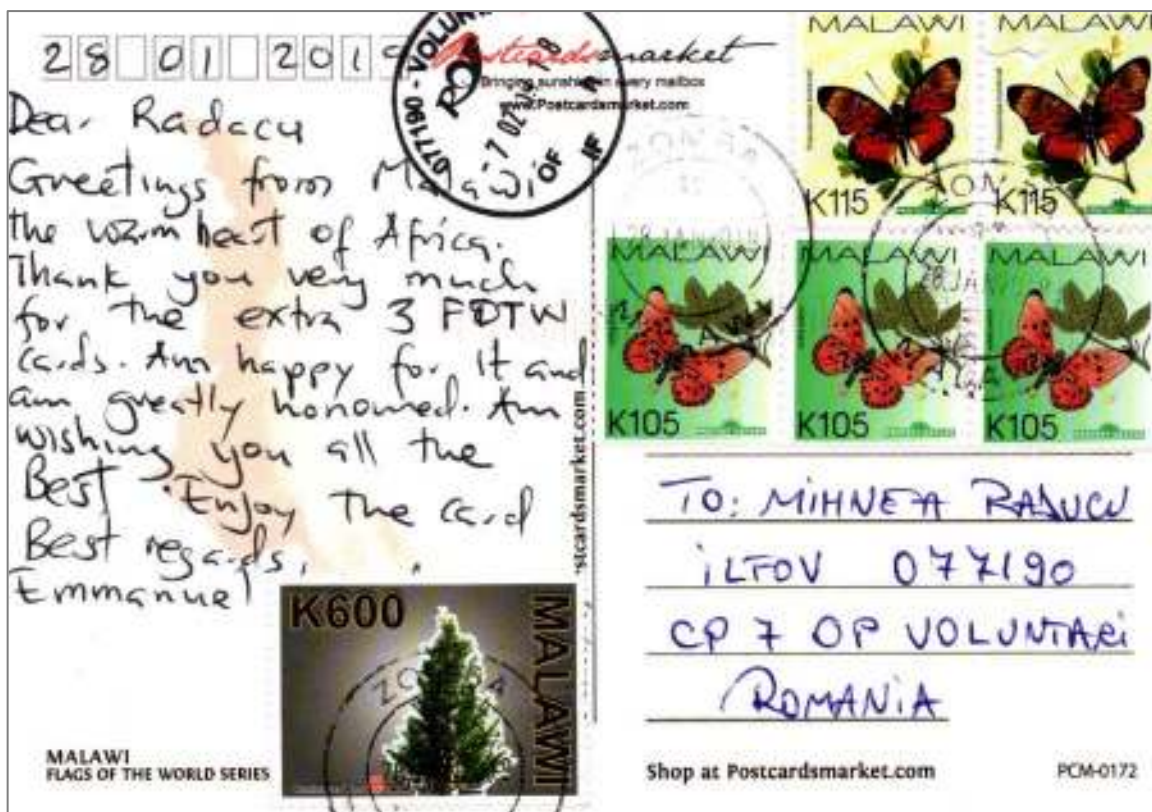 28 01 2019
Postcardsmarket
Bringing sunshine in every mailbox
www.Postcardsmarket.com
077190 - VOLUN
-7 02
OF
Dear Raducu
Greetings from Malawi
the warm heart of Africa.
Thank you very much
for the extra 3 FOTW
cards. Am happy for it and
am greatly honoured. Am
wishing you all the
Best. Enjoy the card
Best regards,
Emmanuel
MALAWI
K115
MALAWI
K115
ZOMBA
ZOMBA
MALAWI
K105
MALAWI
K105
MALAWI
K105
28 JAN
stcardsmarket.com
TO: MIHNEA RADUCU
ILFOV 077190
CP 7 OP VOLUNTARI
ROMANIA
K600
MALAWI
ZOMBA
MALAWI
FLAGS OF THE WORLD SERIES
Shop at Postcardsmarket.com
PCM-0172